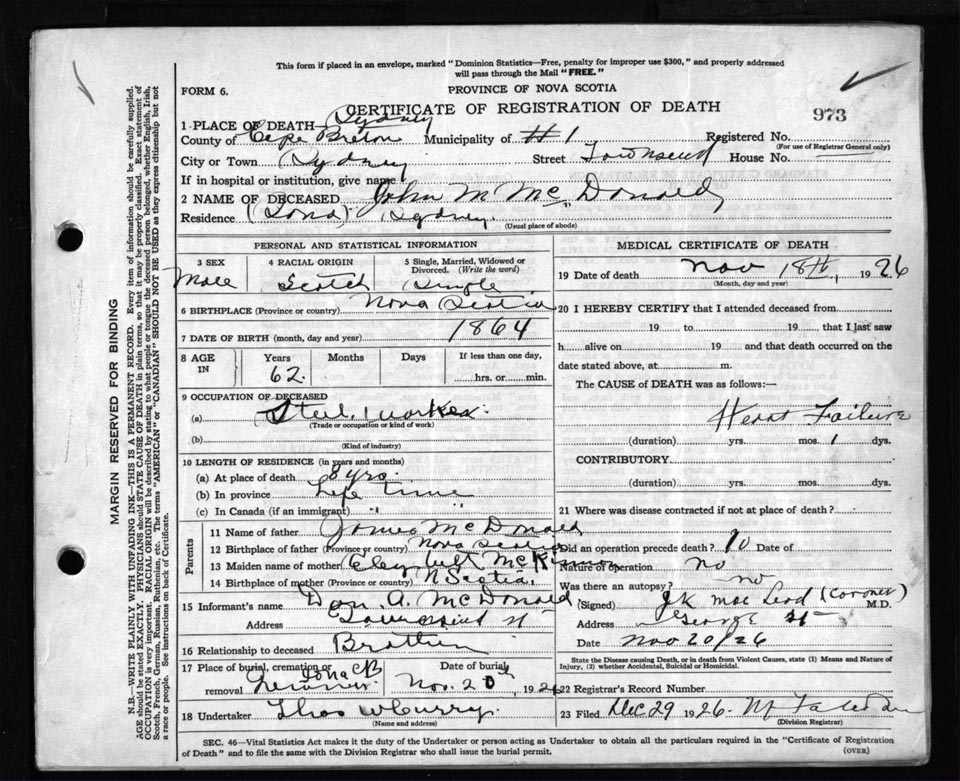 This form if placed in an envelope, marked "Dominion Statistics—Free, penalty for improper use $300," and properly addressed
will pass through the Mail "FREE."
FORM 6.
PROVINCE OF NOVA SCOTIA
CERTIFICATE OF REGISTRATION OF DEATH
973
1 PLACE OF DEATH— Sydney
County of Cape Breton Municipality of #1 Registered No.
(For use of Registrar General only)
City or Town Sydney Street Townsend House No.
If in hospital or institution, give name
2 NAME OF DECEASED John M McDonald
Residence (Iona) Sydney
(Usual place of abode)
PERSONAL AND STATISTICAL INFORMATION
3 SEX
Male
4 RACIAL ORIGIN
Scotch
5 Single, Married, Widowed or
Divorced. (Write the word)
Single
6 BIRTHPLACE (Province or country) Nova Scotia
7 DATE OF BIRTH (month, day and year) 1864
8 AGE
IN
Years
62
Months
Days
If less than one day,
hrs. or min.
9 OCCUPATION OF DECEASED
(a) Steel worker
(Trade or occupation or kind of work)
(b)
(Kind of industry)
10 LENGTH OF RESIDENCE (in years and months)
(a) At place of death 8 yrs
(b) In province Life time
(c) In Canada (if an immigrant) " "
Parents
11 Name of father James McDonald
12 Birthplace of father (Province or country) Nova Scotia
13 Maiden name of mother
14 Birthplace of mother (Province or country) N Scotia
15 Informant's name Dan. A. McDonald
Address Townsend St
16 Relationship to deceased Brother
17 Place of burial, cremation or
removal
Iona CB
Date of burial
Nov. 20th, 1926
18 Undertaker Thos W Curry
(Name and address)
MEDICAL CERTIFICATE OF DEATH
19 Date of death Nov 18th, 1926
(Month, day and year)
20 I HEREBY CERTIFY that I attended deceased from
19 to 19 that I last saw
h alive on 19 and that death occurred on the
date stated above, at m.
The CAUSE of DEATH was as follows:—
Heart Failure
(duration) yrs. mos. 1 dys.
CONTRIBUTORY
(duration) yrs. mos. dys.
21 Where was disease contracted if not at place of death?
Did an operation precede death? No Date of
Nature of operation no
Was there an autopsy? no
(Signed) J K MacLeod (Coroner) M.D.
Address George St
Date Nov 20/26
State the Disease causing Death, or in death from Violent Causes, state (1) Means and Nature of
Injury, (2) whether Accidental, Suicidal or Homicidal.
22 Registrar's Record Number
23 Filed Dec 29 1926
(Division Registrar)
SEC. 46—Vital Statistics Act makes it the duty of the Undertaker or person acting as Undertaker to obtain all the particulars required in the "Certificate of Registration
of Death" and to file the same with the Division Registrar who shall issue the burial permit.
(OVER)
MARGIN RESERVED FOR BINDING
N.B.—WRITE PLAINLY WITH UNFADING INK—THIS IS A PERMANENT RECORD. Every item of information should be carefully supplied.
AGE should be stated EXACTLY. PHYSICIANS should STATE CAUSE OF DEATH in plain terms, so that it may be properly classified. Exact statement of
OCCUPATION is very important. RACIAL ORIGIN will be described by stating to what people or tongue the deceased person belonged, whether English, Irish,
Scotch, French, German, Russian, Ruthenian, etc. The terms "AMERICAN" or "CANADIAN" SHOULD NOT BE USED as they express citizenship but not
a race or people. See instructions on back of Certificate.